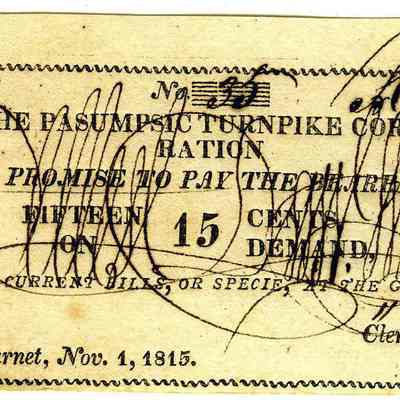 No. 35
HE PASUMPSIC TURNPIKE COR
RATION
PROMISE TO PAY THE BEARE
FIFTEEN 15 CENTS
ON DEMAND,
CURRENT BILLS, OR SPECIE, AT THE G
Cler
rnet, Nov. 1, 1815.